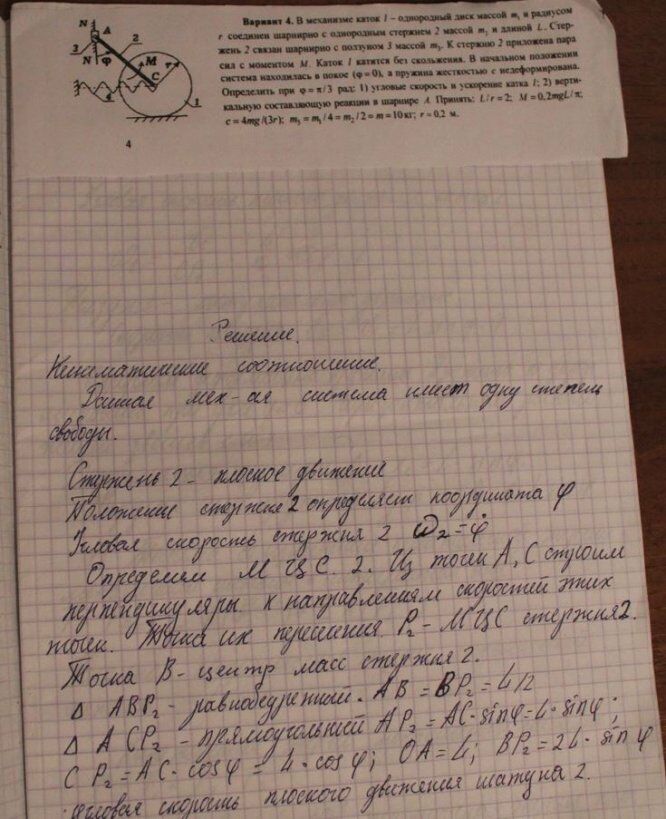 N
A
3
N
φ
2
M
r
C
1
4
Вариант 4. В механизме каток 1 – однородный диск массой m₁ и радиусом
r соединен шарнирно с однородным стержнем 2 массой m₂ и длиной L. Стер-
жень 2 связан шарнирно с ползуном 3 массой m₃. К стержню 2 приложена пара
сил с моментом M. Каток 1 катится без скольжения. В начальном положении
система находилась в покое (φ = 0), а пружина жесткостью c недеформирована.
Определить при φ = π/3 рад: 1) угловые скорость и ускорение катка 1; 2) верти-
кальную составляющую реакции в шарнире A. Принять: L/r = 2; M = 0,2mgL/π;
c = 4mg/(3r); m₃ = m₁/4 = m₂/2 = m = 10 кг; r = 0,2 м.
Решение.
Кинематические соотношение.
Данная мех-ая система имеет одну степень
свободы.
Стержень 2 – плоское движений
Положение стержне 2 определяет координата φ
Угловая скорость стержня 2 ω₂ = φ̇
Определим МЦС. 2. Из точек A, C строим
перпендикуляры к направлениям скоростей этих
точек. Точка их пересечения P₂ – МЦС стержня 2.
Точка B – центр масс стержня 2.
Δ ABP₂ – равнобедренный. AB = BP₂ = L/2
Δ ACP₂ – прямоугольний AP₂ = AC · sin φ = L · sin φ;
CP₂ = AC · cos φ = L · cos φ; OA = L; BP₂ = 2L · sin φ
Угловая скорость плоского движения шатуна 2.